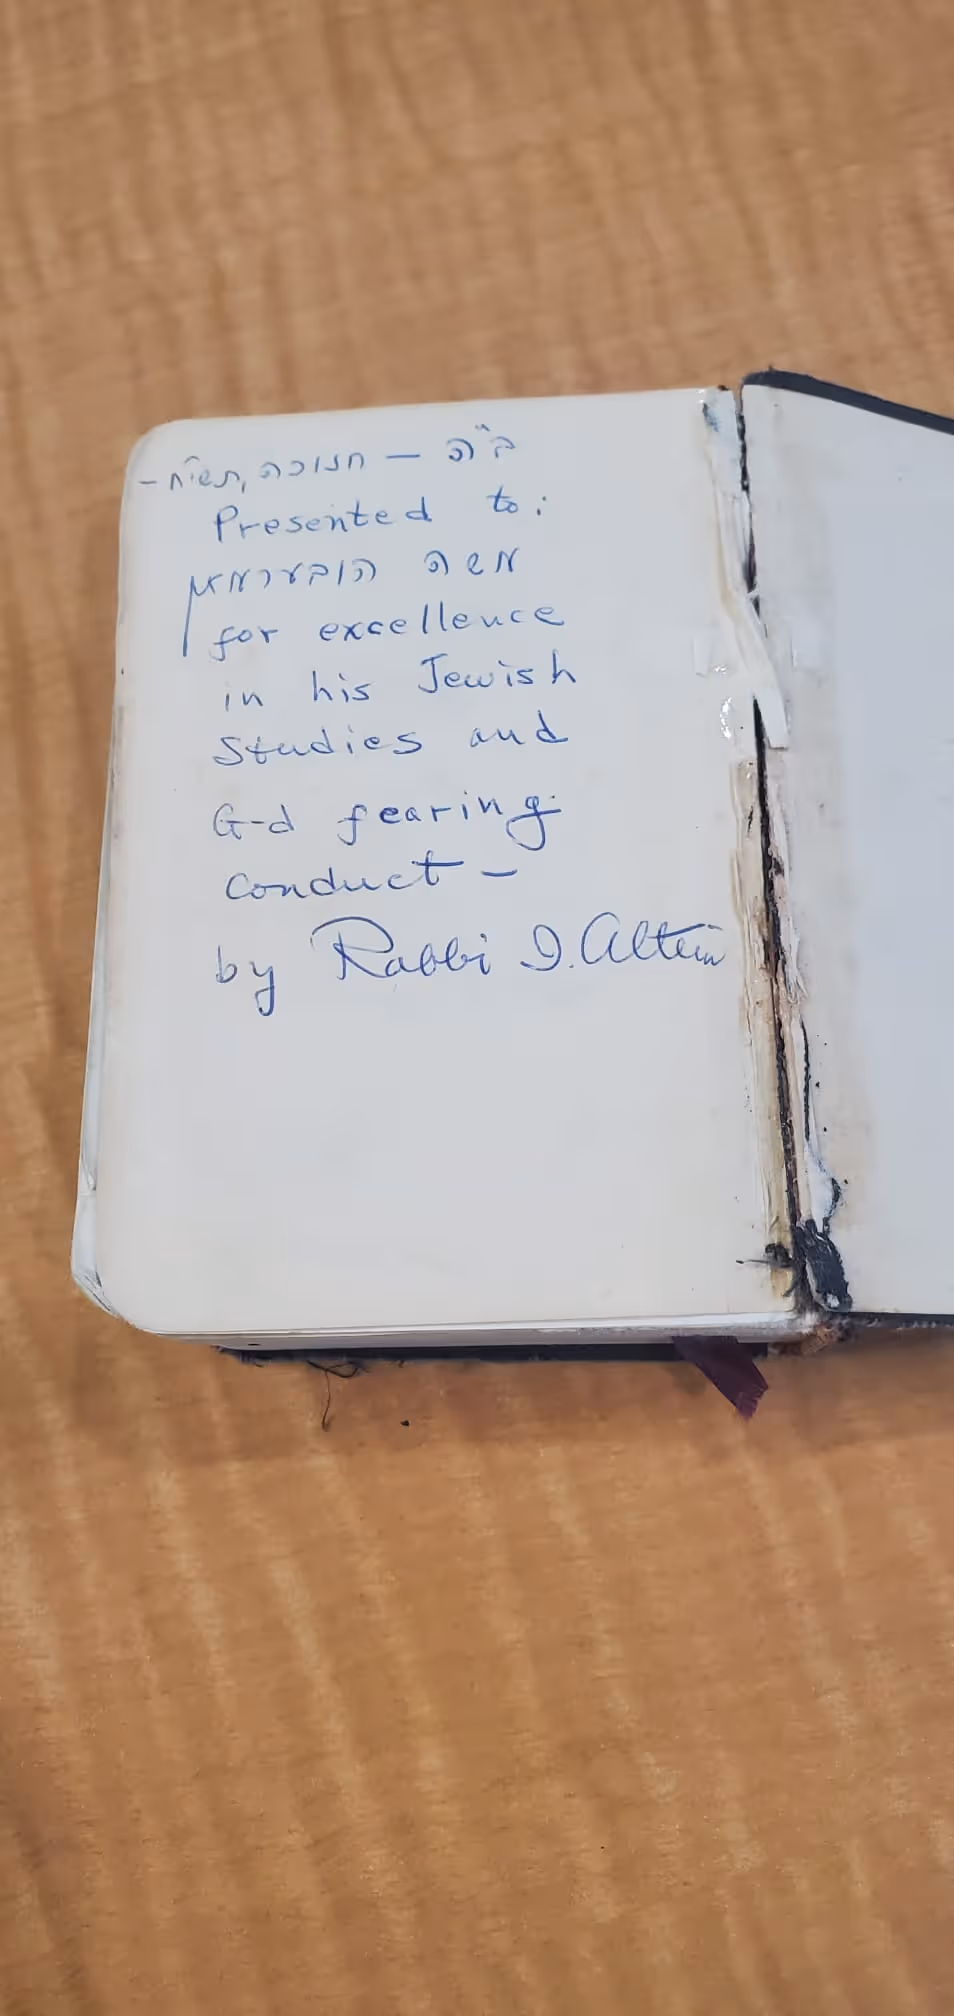 ב"ה — חנוכה, תשי"ח -
Presented to:
משה הובערמאן
for excellence
in his Jewish
Studies and
G-d fearing
conduct —
by Rabbi I. Altein